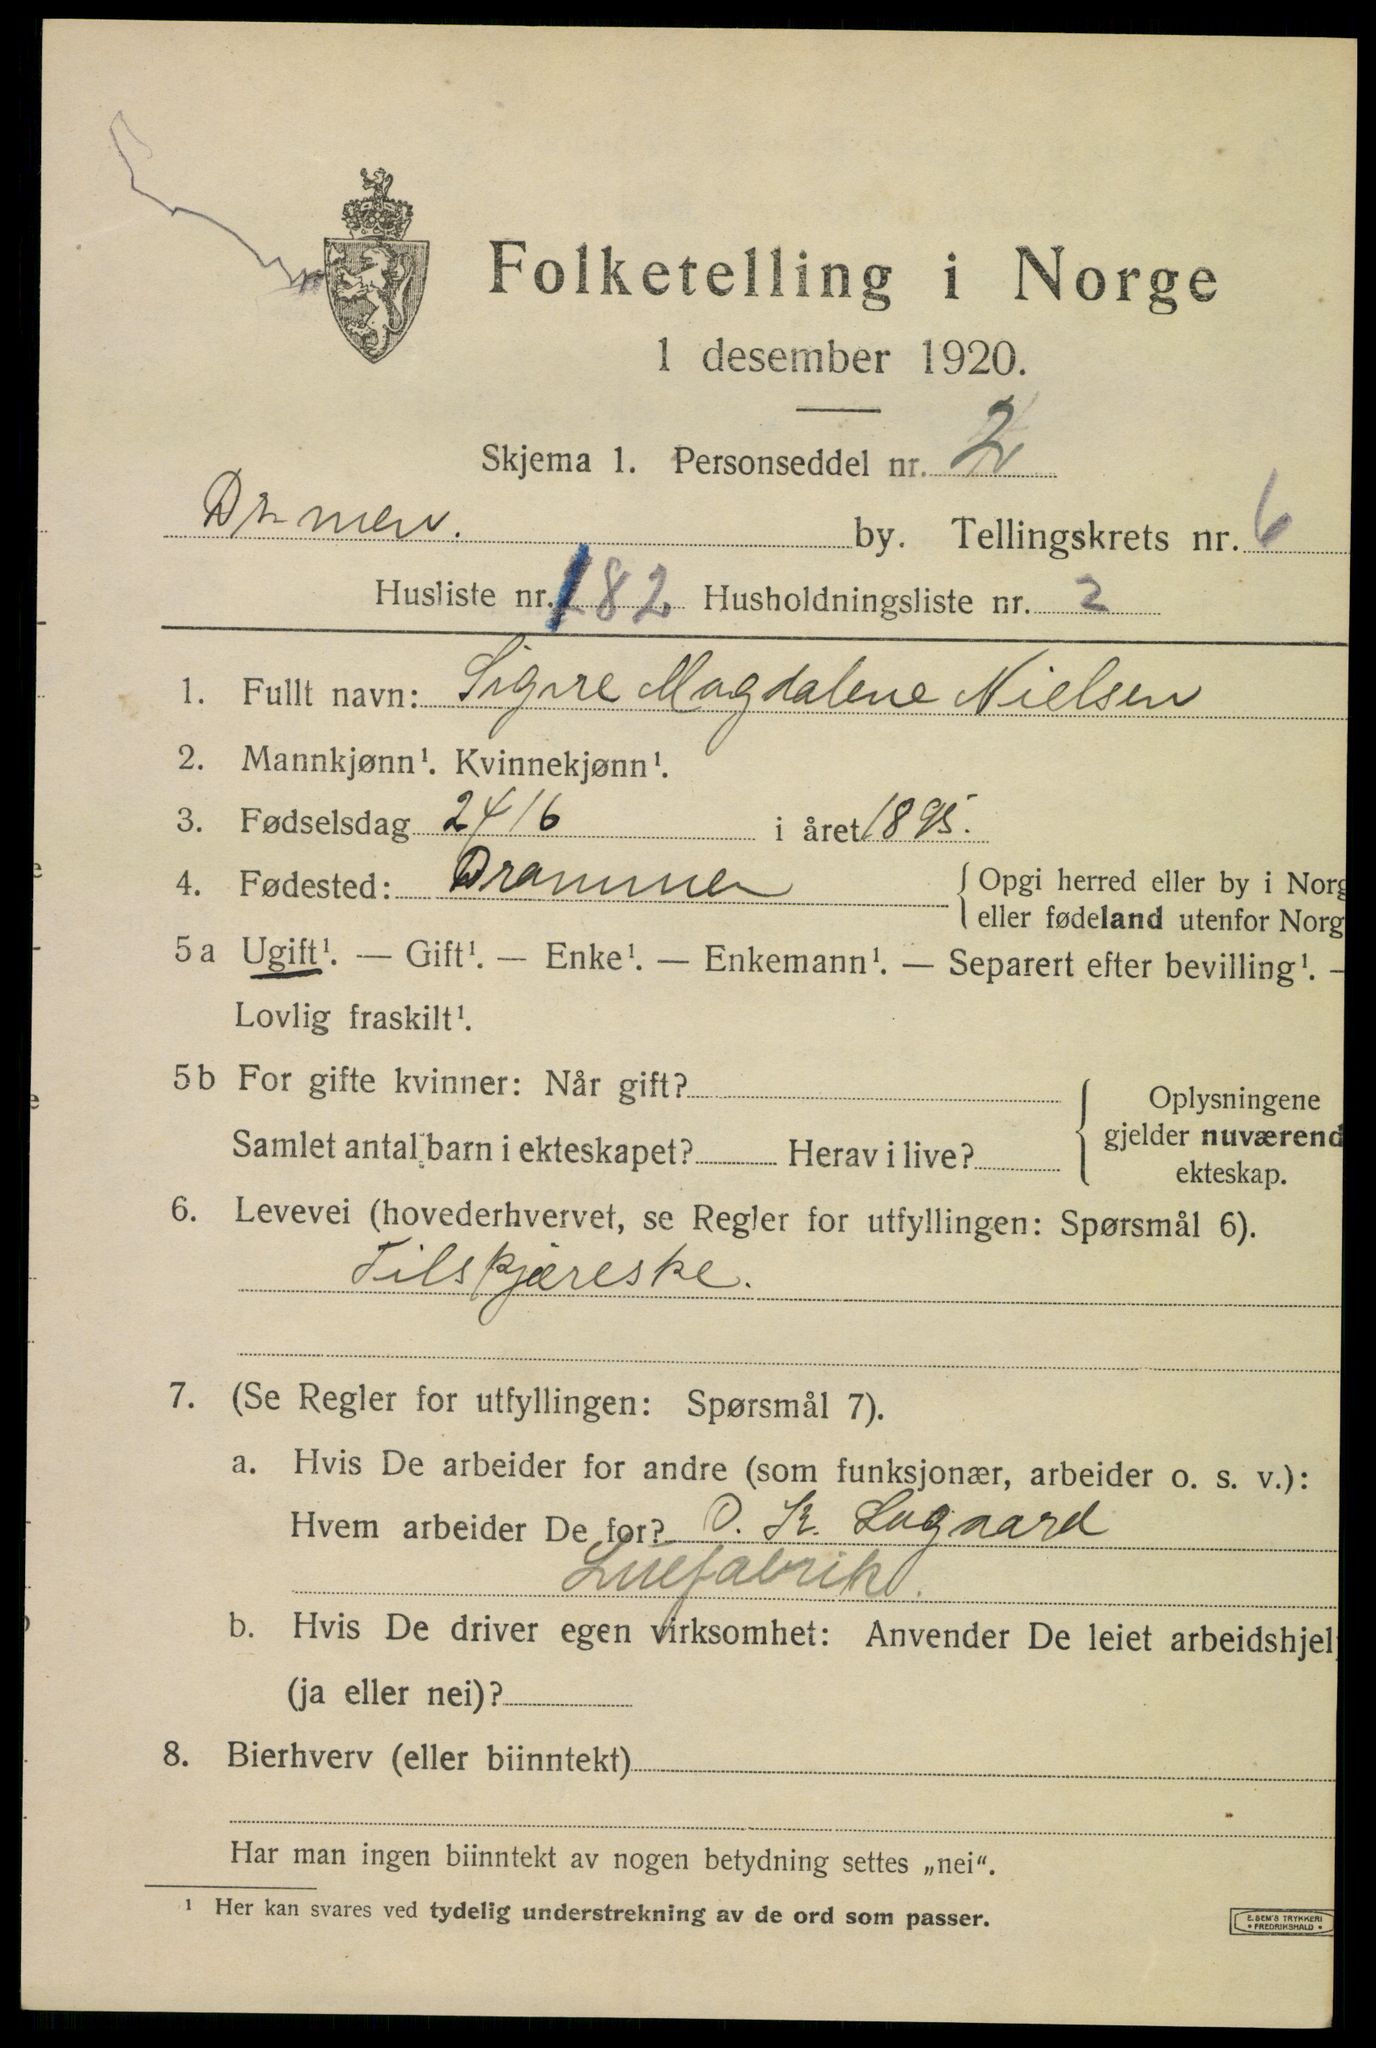 Folketelling i Norge
1 desember 1920.
Skjema 1. Personseddel nr. 2
Drmen. by. Tellingskrets nr. 6
Husliste nr. 182 Husholdningsliste nr. 2
1. Fullt navn: Signe Magdalene Nielsen
2. Mannkjønn¹. Kvinnekjønn¹.
3. Fødselsdag 24/6 i året 1895.
4. Fødested: Drammen
{ Opgi herred eller by i Norg
eller fødeland utenfor Norg
5 a Ugift¹. — Gift¹. — Enke¹. — Enkemann¹. — Separert efter bevilling¹. —
Lovlig fraskilt¹.
5 b For gifte kvinner: Når gift?
Samlet antal barn i ekteskapet? Herav i live?
{ Oplysningene
gjelder nuværend
ekteskap.
6. Levevei (hovederhvervet, se Regler for utfyllingen: Spørsmål 6).
Tilskjæreske.
7. (Se Regler for utfyllingen: Spørsmål 7).
a. Hvis De arbeider for andre (som funksjonær, arbeider o. s. v.):
Hvem arbeider De for? O. K.
Luefabrik.
b. Hvis De driver egen virksomhet: Anvender De leiet arbeidshjel
(ja eller nei)?
8. Bierhverv (eller biinntekt)
Har man ingen biinntekt av nogen betydning settes „nei“.
¹ Her kan svares ved tydelig understrekning av de ord som passer.
E. SEM'S TRYKKERI
• FREDRIKSHALD •